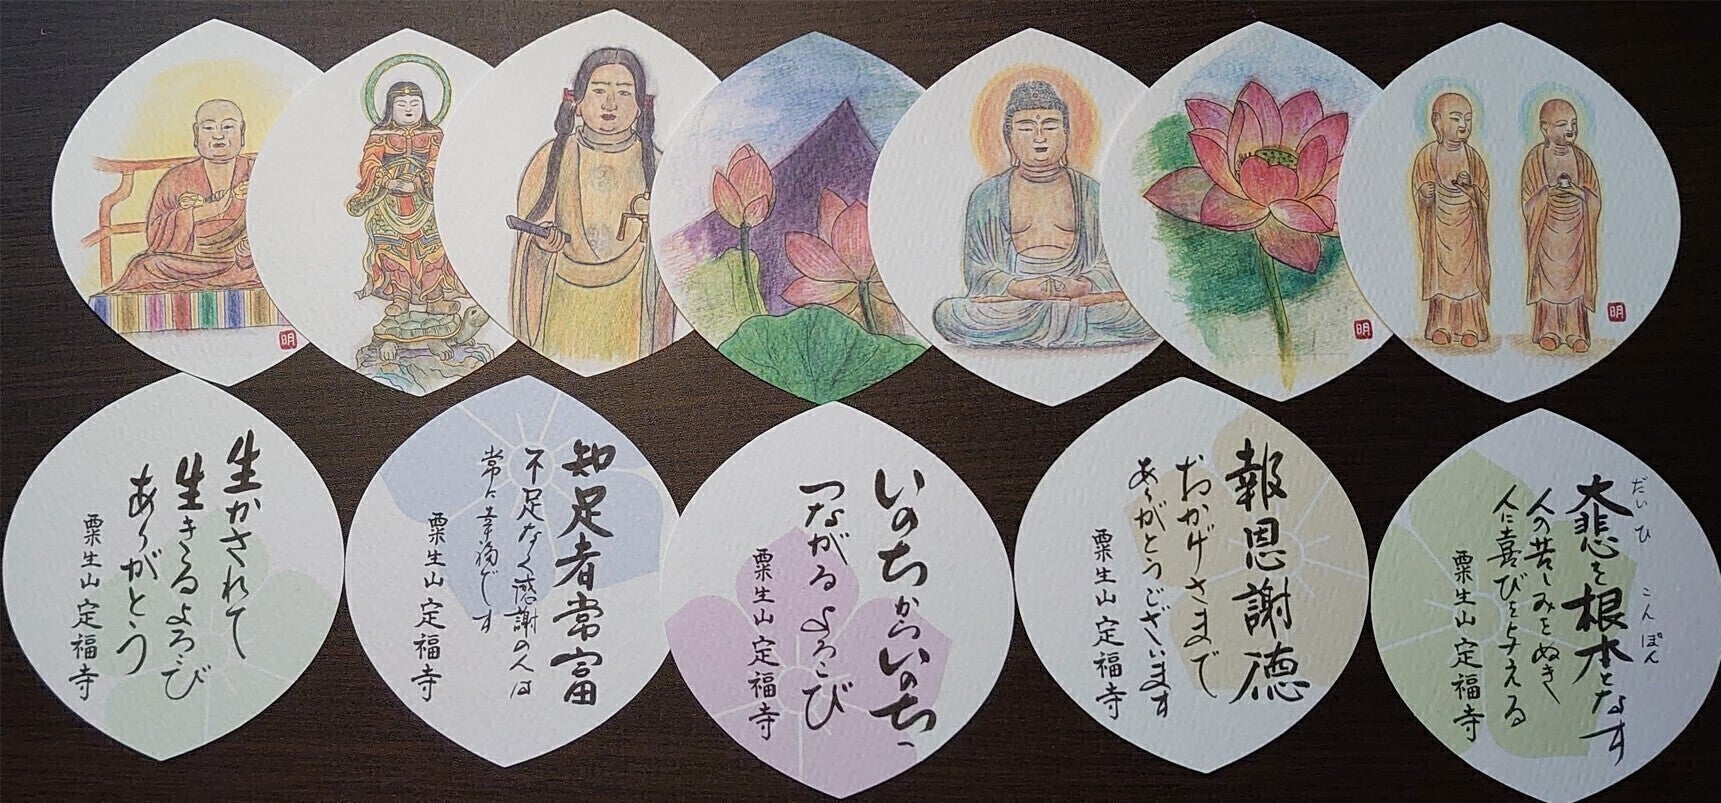 明
明
明
生かされて
生きるよろこび
ありがとう
粟生山 定福寺
知足者常富
不足なく感謝の人は
常に幸福です
粟生山 定福寺
いのちからいのちへ
つながるよろこび
粟生山 定福寺
報恩謝徳
おかげさまで
ありがとうございます
粟生山 定福寺
だいひ こんぽん
大悲を根本となす
人の苦しみをぬき
人に喜びを与える
粟生山 定福寺